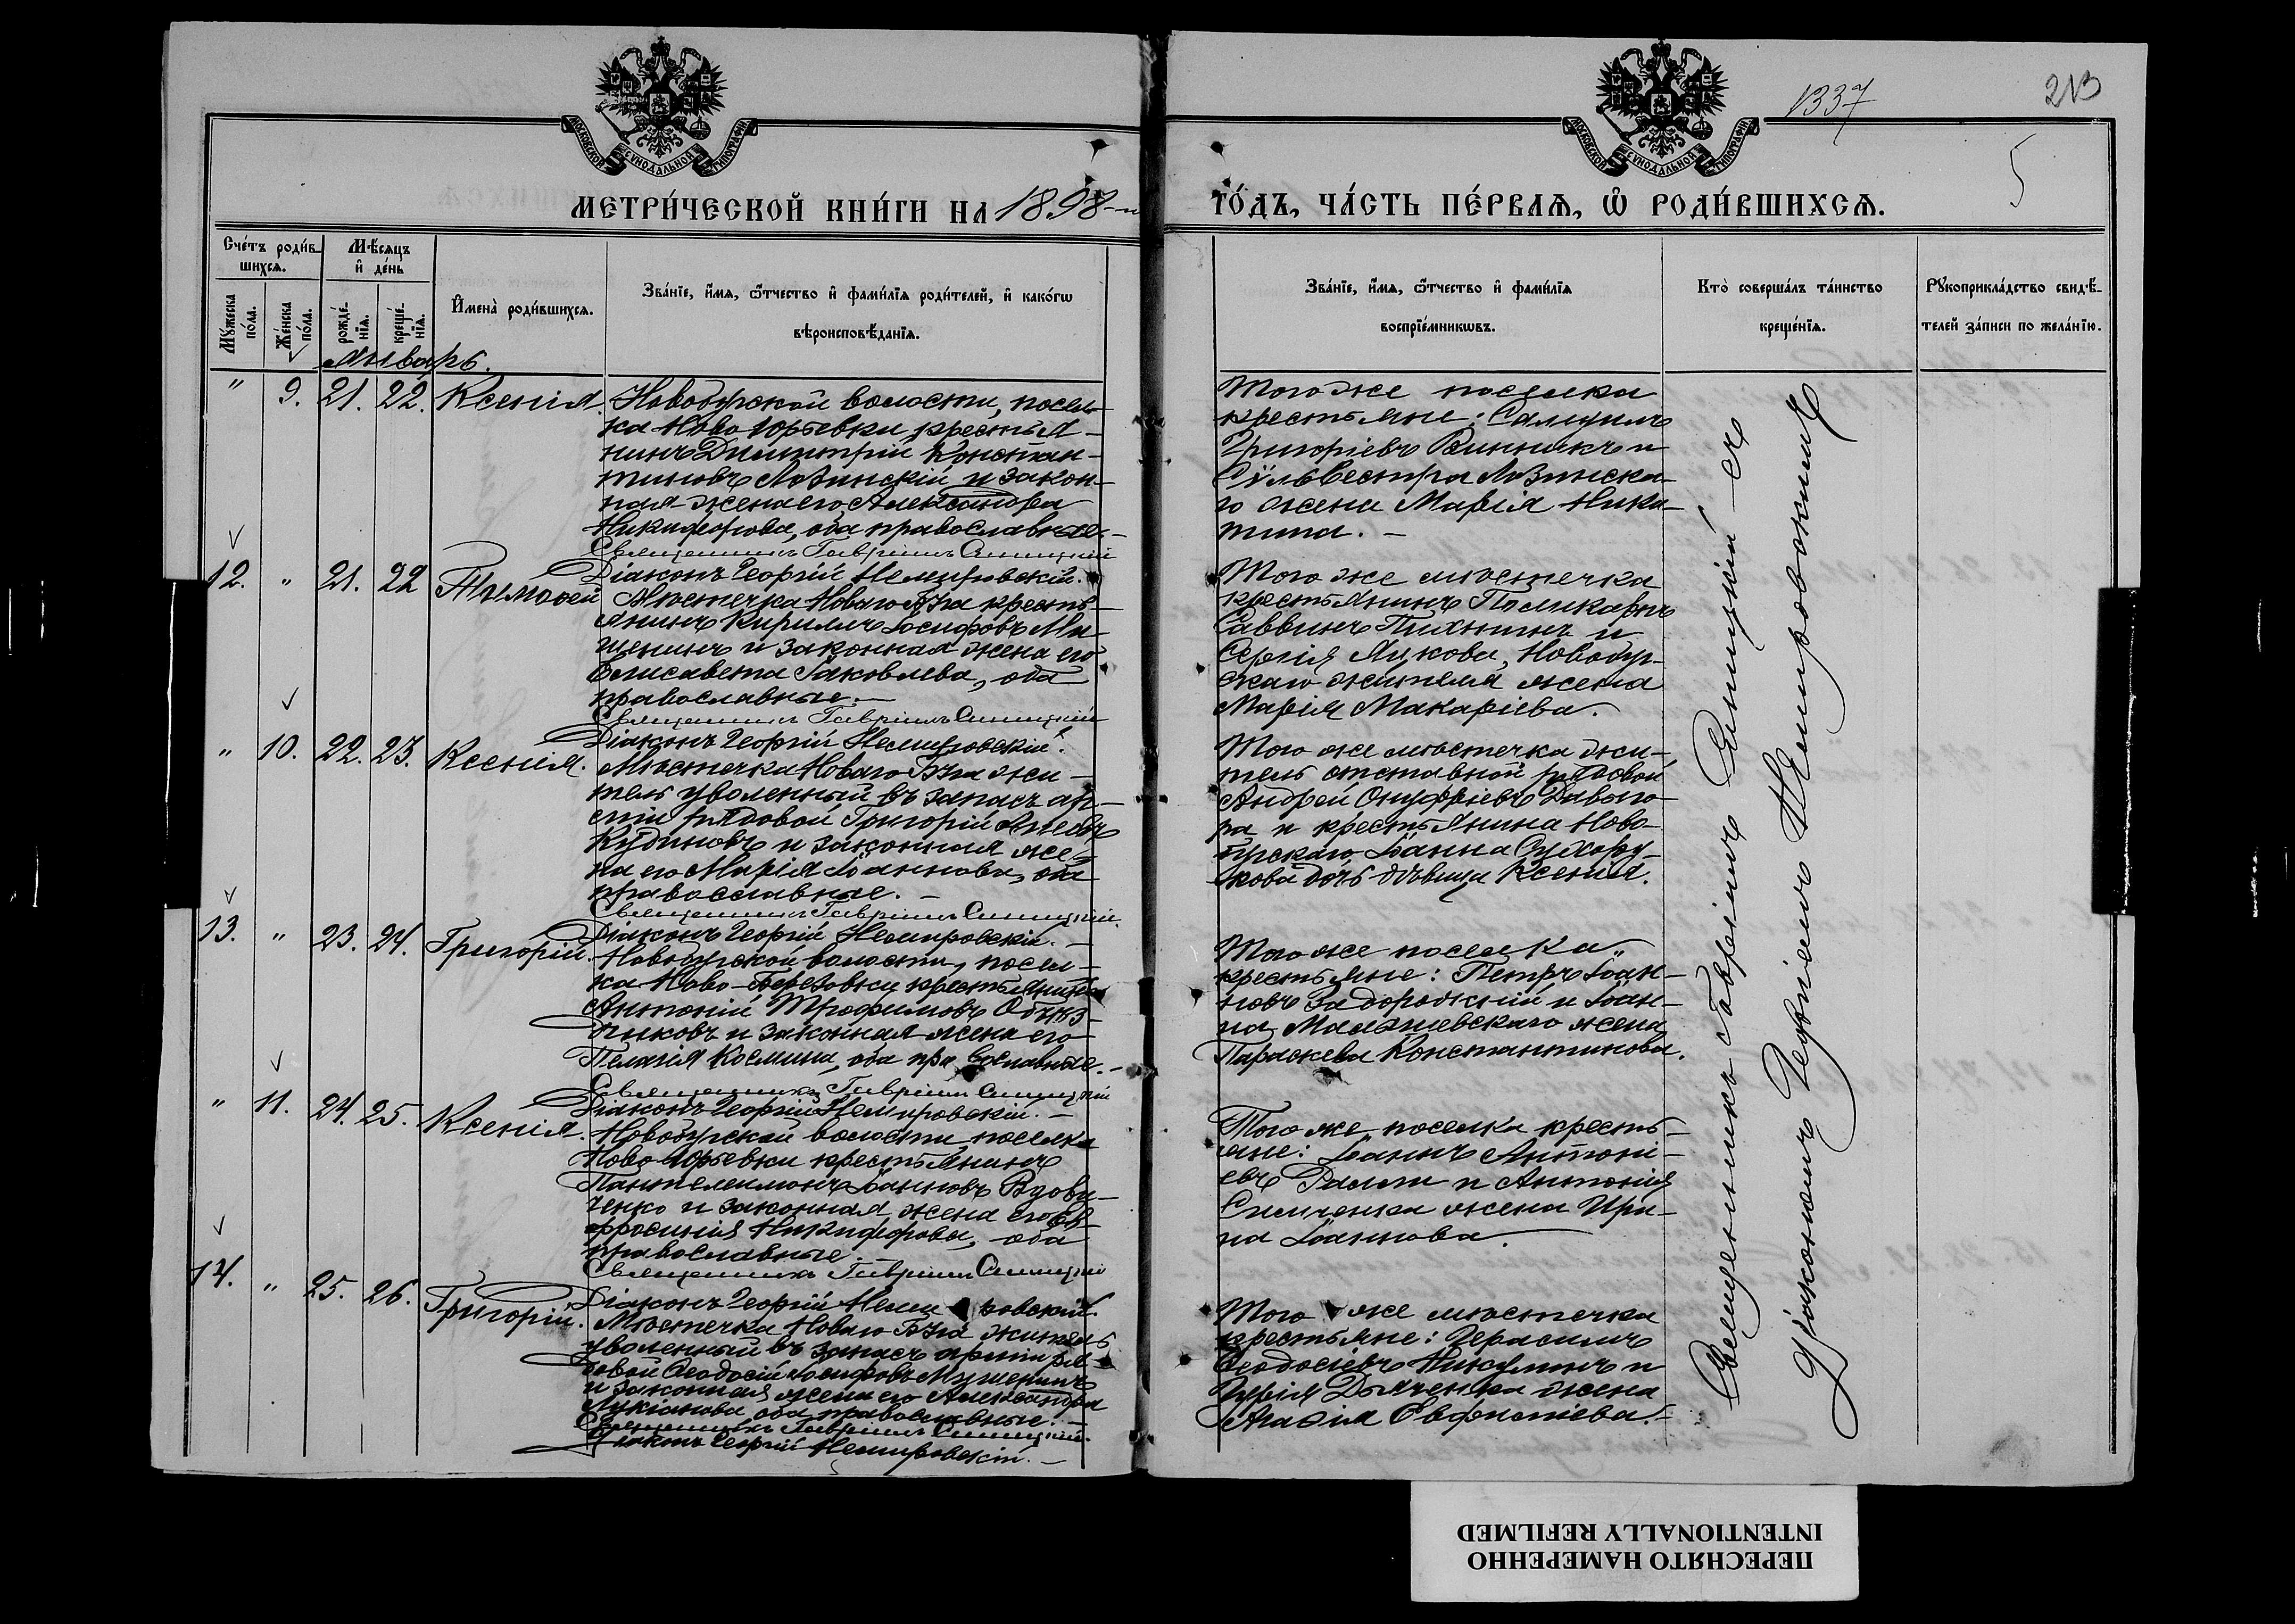 1337
213
5
МОСКОВСКОЙ СѴНОДАЛЬНОЙ ТИПОГРАФІИ
МОСКОВСКОЙ СѴНОДАЛЬНОЙ ТИПОГРАФІИ
МЕТРИ́ЧЕСКОЙ КНИ́ГИ НА 1898-й
ГО́ДЪ, ЧА́СТЬ ПЕ́РВАЯ, Ѡ РОДИ́ВШИХСЯ.
Сче́тъ роди́вшихся.
Мѣ́сяцъ и де́нь
Му́жеска по́ла.
Же́нска по́ла.
рожде́нїя.
креще́нїя.
Имена̀ роди́вшихся.
Зва́нїе, и́мя, ѻ́тчество и фами́лїя роди́телей, и како́гѡ
вѣроисповѣ́данїя.
Зва́нїе, и́мя, ѻ́тчество и фами́лїя
воспрїе́мникѡвъ.
Кто̀ соверша́лъ та́инство
креще́нїя.
Рукоприкла́дство свидѣ́-
телей за́писи по жела́нїю.
Январь.
" 9. 21. 22. Ксенія.
Новобугской волости, посел-
ка Ново Юрьевки крестья-
нинъ Димитрій Констан-
тиновъ Лозинскій и закон-
ная жена его Александра
Никифорова, оба православные.-
Священникъ Гавріилъ Синицкій
Діаконъ Георгій Немировскій.
Того же поселка
крестьяне: Самуилъ
Григоріевъ Винникъ и
Сѵльвестра Лозинска-
го жена Марія Ники-
тина. -
12. " 21. 22 Тимоѳей
Мѣстечка Новаго Буга кресть-
янинъ Кириллъ Іосифовъ Ми-
щенинъ и законная жена его
Елисавета Іаковлева, оба
православные.-
Священникъ Гавріилъ Синицкій
Діаконъ Георгій Немировскій.
Того же мѣстечка
крестьянинъ Поликарпъ
Саввинъ Пихнинъ и
Сергія Лукова, Новобуг-
скаго жителя жена
Марія Макаріева.
" 10. 22. 23. Ксенія.
Мѣстечка Новаго Буга жи-
тель уволенный въ запасъ ар-
міи рядовой Григорій
Кудиновъ и законная же-
на его Марія Іоаннова, оба
православные. -
Священникъ Гавріилъ Синицкій.
Діаконъ Георгій Немировскій. -
Того же мѣстечка жи-
тель отставной рядовой
Андрей Онуфріевъ
и крестьянина Ново-
бугскаго Іоанна Сухору-
кова дочь дѣвица Ксенія.
13. " 23. 24. Григорій.
Новобугской волости, посел-
ка Ново-Березовки крестьянинъ
Антоній Трофимовъ
и законная жена его
Пелагія Космина, оба православные. -
Священникъ Гавріилъ Синицкій
Діаконъ Георгій Немировскій. -
Того же поселка
крестьяне: Петръ Іоан-
новъ Задорожній и Іоан-
на жена
Параскева Константинова.
" 11. 24. 25. Ксенія.
Новобугской волости поселка
Ново Юрьевки крестьянинъ
Пантелеимонъ Іоанновъ Вдови-
ченко и законная жена его Ев-
фросинія Никифорова, оба
православные.
Священникъ Гавріилъ Синицкій
Діаконъ Георгій Немировскій.
Того же поселка кресть-
яне: Іоаннъ Антоні-
евъ и Антонія
жена Ири-
на Іоаннова.
14. " 25. 26. Григорій.
Мѣстечка Новаго Буга житель
уволенный въ запасъ арміи ря-
довой Ѳеодосій Іосифовъ
и законная жена его Александра
Лукіанова, оба православные. -
Священникъ Гавріилъ Синицкій.
Діаконъ Георгій Немировскій. -
Того же мѣстечка
крестьяне: Герасимъ
Ѳеодосіевъ Никулинъ и
Дьяченка жена
Агаѳія Евфиміева.-
Священникъ Гавріилъ Синицкій съ
Діакономъ Георгіемъ Немировскимъ
ПЕРЕСНЯТО НАМЕРЕННО
INTENTIONALLY REFILMED